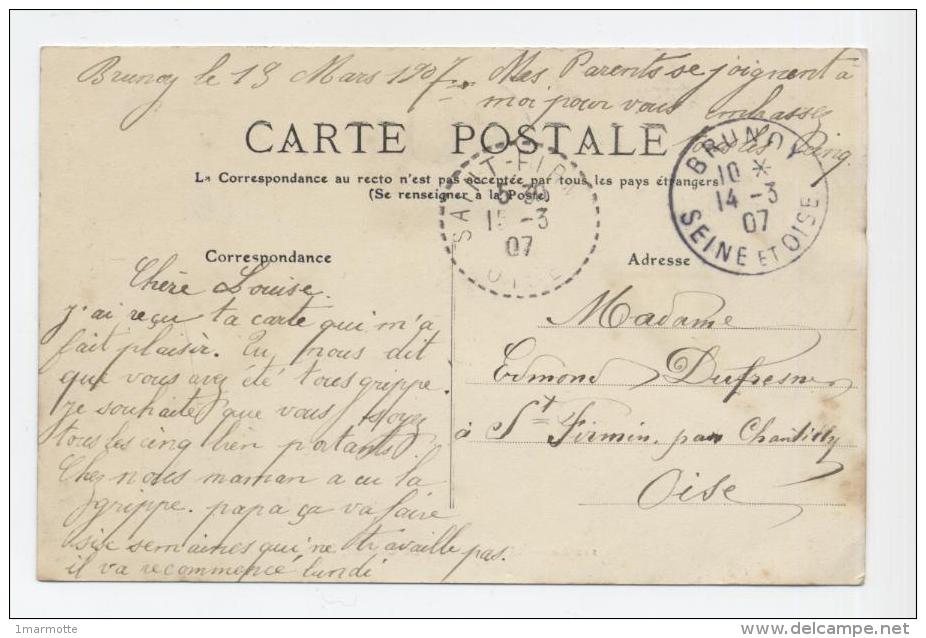 Brunoy le 13 Mars 1907 Mes Parents se joignent à
moi pour vous embrasser
tous les cinq
CARTE POSTALE
La Correspondance au recto n'est pas acceptée par tous les pays étrangers
(Se renseigner à la Poste)
BRUNOY
10 *
14 -3
07
SEINE ET OISE
SAINT-FIRMIN
15 30
15 -3
07
OISE
Correspondance
Adresse
Chère Louise.
J'ai reçu ta carte qui m'a
fait plaisir. Tu nous dit
que vous avez été tous grippe.
Je souhaite que vous soyez
tous les cinq bien portants.
Chez nous maman a eu la
grippe. papa ça va faire
six semaines qui ne travaille pas.
il va recommencé lundi
Madame
Edmond Dufresne
à St Firmin, par Chantilly
Oise
1marmotte
www.delcampe.net